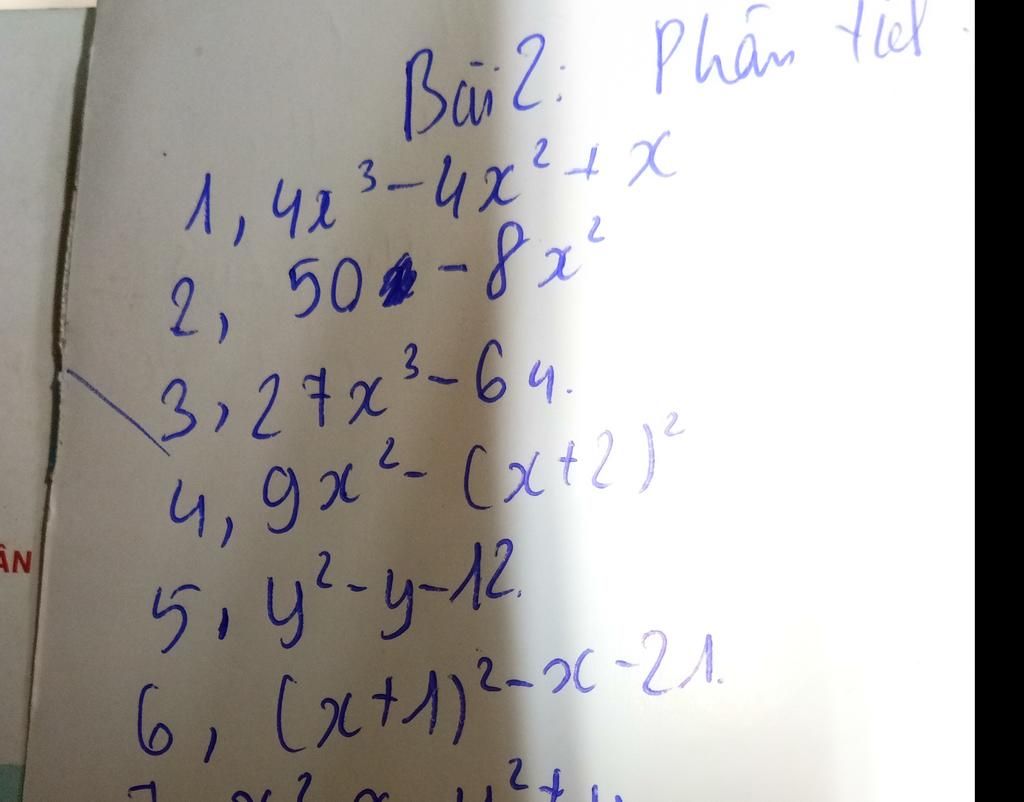 Bài 2: Phân
1, 4x³ - 4x² + x
2, 50 - 8x²
3, 27x³ - 64.
4, 9x² - (x+2)²
5, y² - y - 12.
6, (x+1)² - x - 21.
ÂN